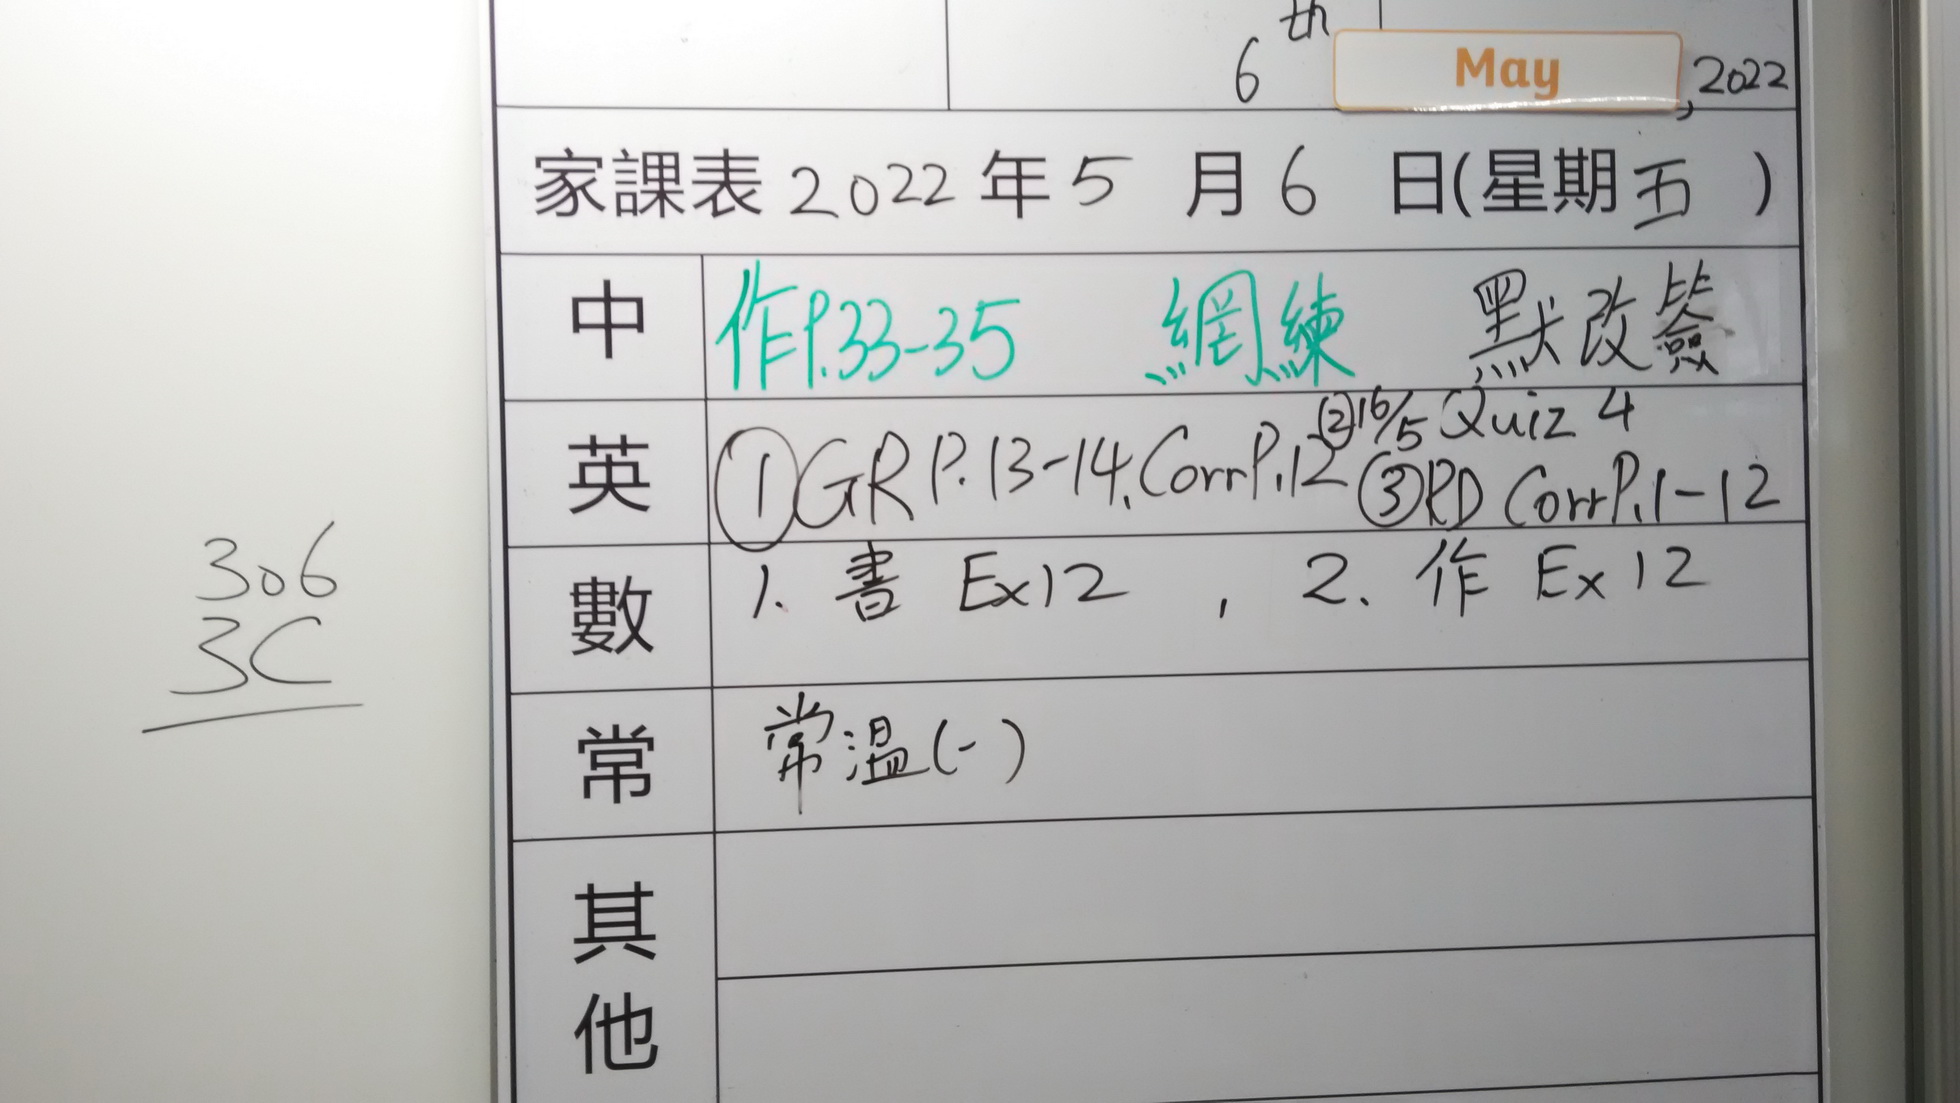 6th May, 2022
家課表 2022 年 5 月 6 日(星期五)
中 作P.33-35 網練 默改簽
英 ①GR P.13-14, Corr P.12 ②16/5 Quiz 4
③RD Corr P.1-12
數 1. 書 Ex12 , 2. 作 Ex12
常 常溫(一)
其他
306
3C